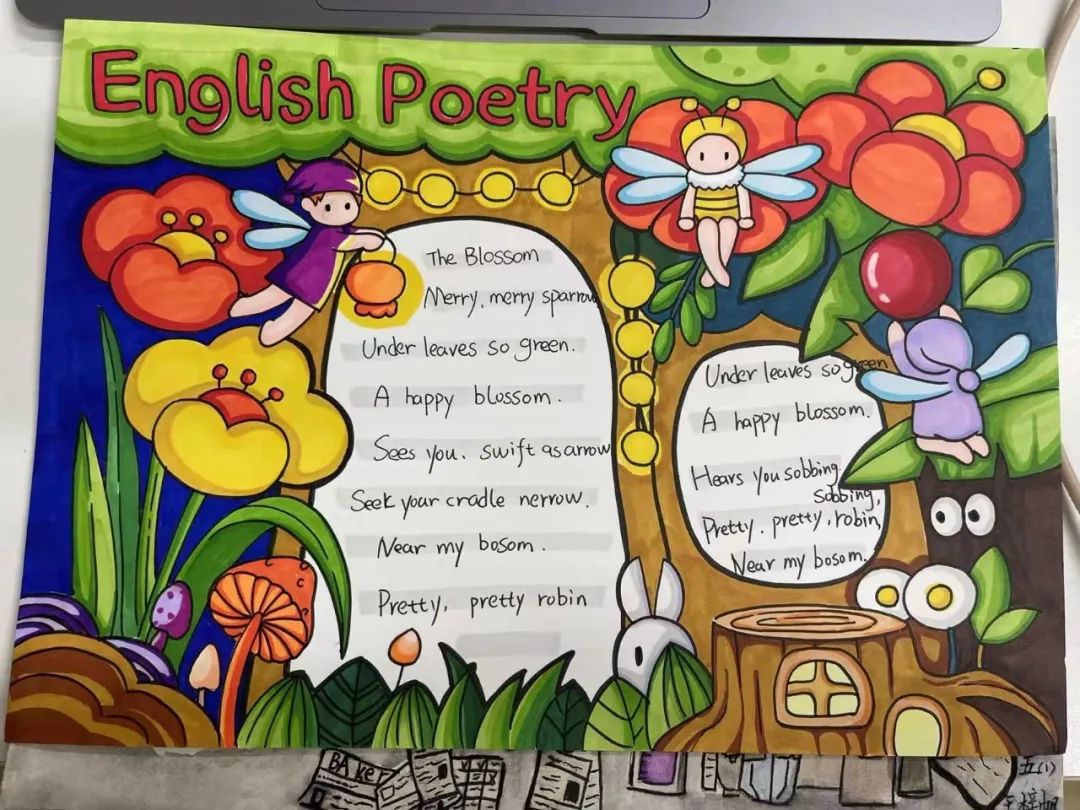 English Poetry
The Blossom
Merry, merry sparrow
Under leaves so green.
A happy blossom.
Sees you. swift as arrow
Seek your cradle nerrow.
Near my bosom.
Pretty, pretty robin
Under leaves so green
A happy blossom.
Hears you sobbing,
sobbing,
Pretty. pretty, robin,
Near my bosom.
BAker
五(1)